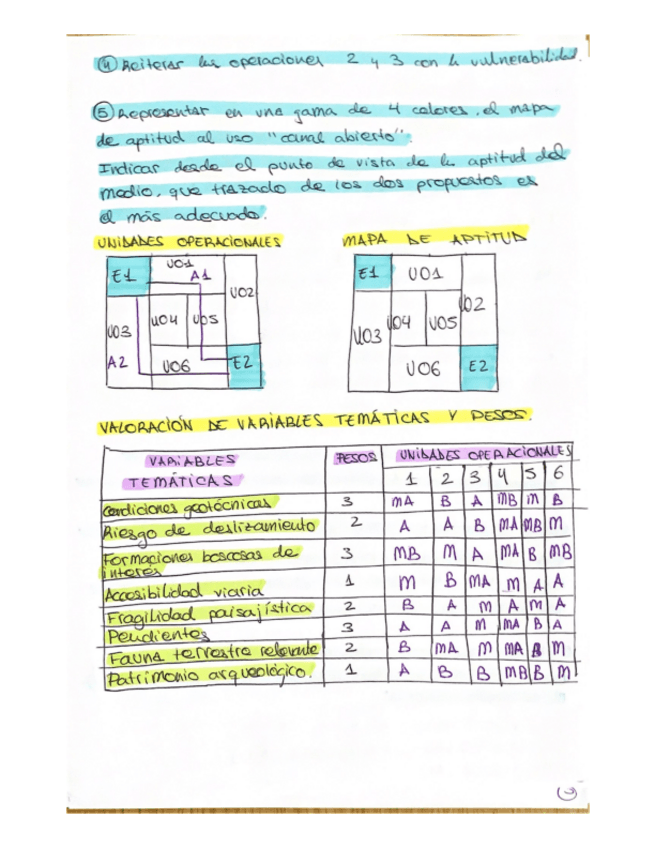 ④ Reiterar las operaciones 2 y 3 con la vulnerabilidad.
⑤ Representar en una gama de 4 colores, el mapa
de aptitud al uso "canal abierto".
Indicar desde el punto de vista de la aptitud del
medio, que trazado de los dos propuestos es
el más adecuado.
UNIDADES OPERACIONALES
E1 UO1 A1 UO2
UO3 UO4 UO5
A2 UO6 E2
MAPA DE APTITUD
E1 UO1 UO2
UO3 UO4 UO5
UO6 E2
VALORACIÓN DE VARIABLES TEMÁTICAS Y PESOS.
VARIABLES TEMÁTICAS PESOS UNIDADES OPERACIONALES
1 2 3 4 5 6
Condiciones geotécnicas 3 MA B A MB M B
Riesgo de deslizamiento 2 A A B MA MB M
Formaciones boscosas de
interes 3 MB M A MA B MB
Accesibilidad viaria 1 M B MA M A A
Fragilidad paisajística 2 B A M A M A
Pendientes 3 A A M MA B A
Fauna terrestre relevante 2 B MA M MA M
Patrimonio arqueológico. 1 A B B MB B M